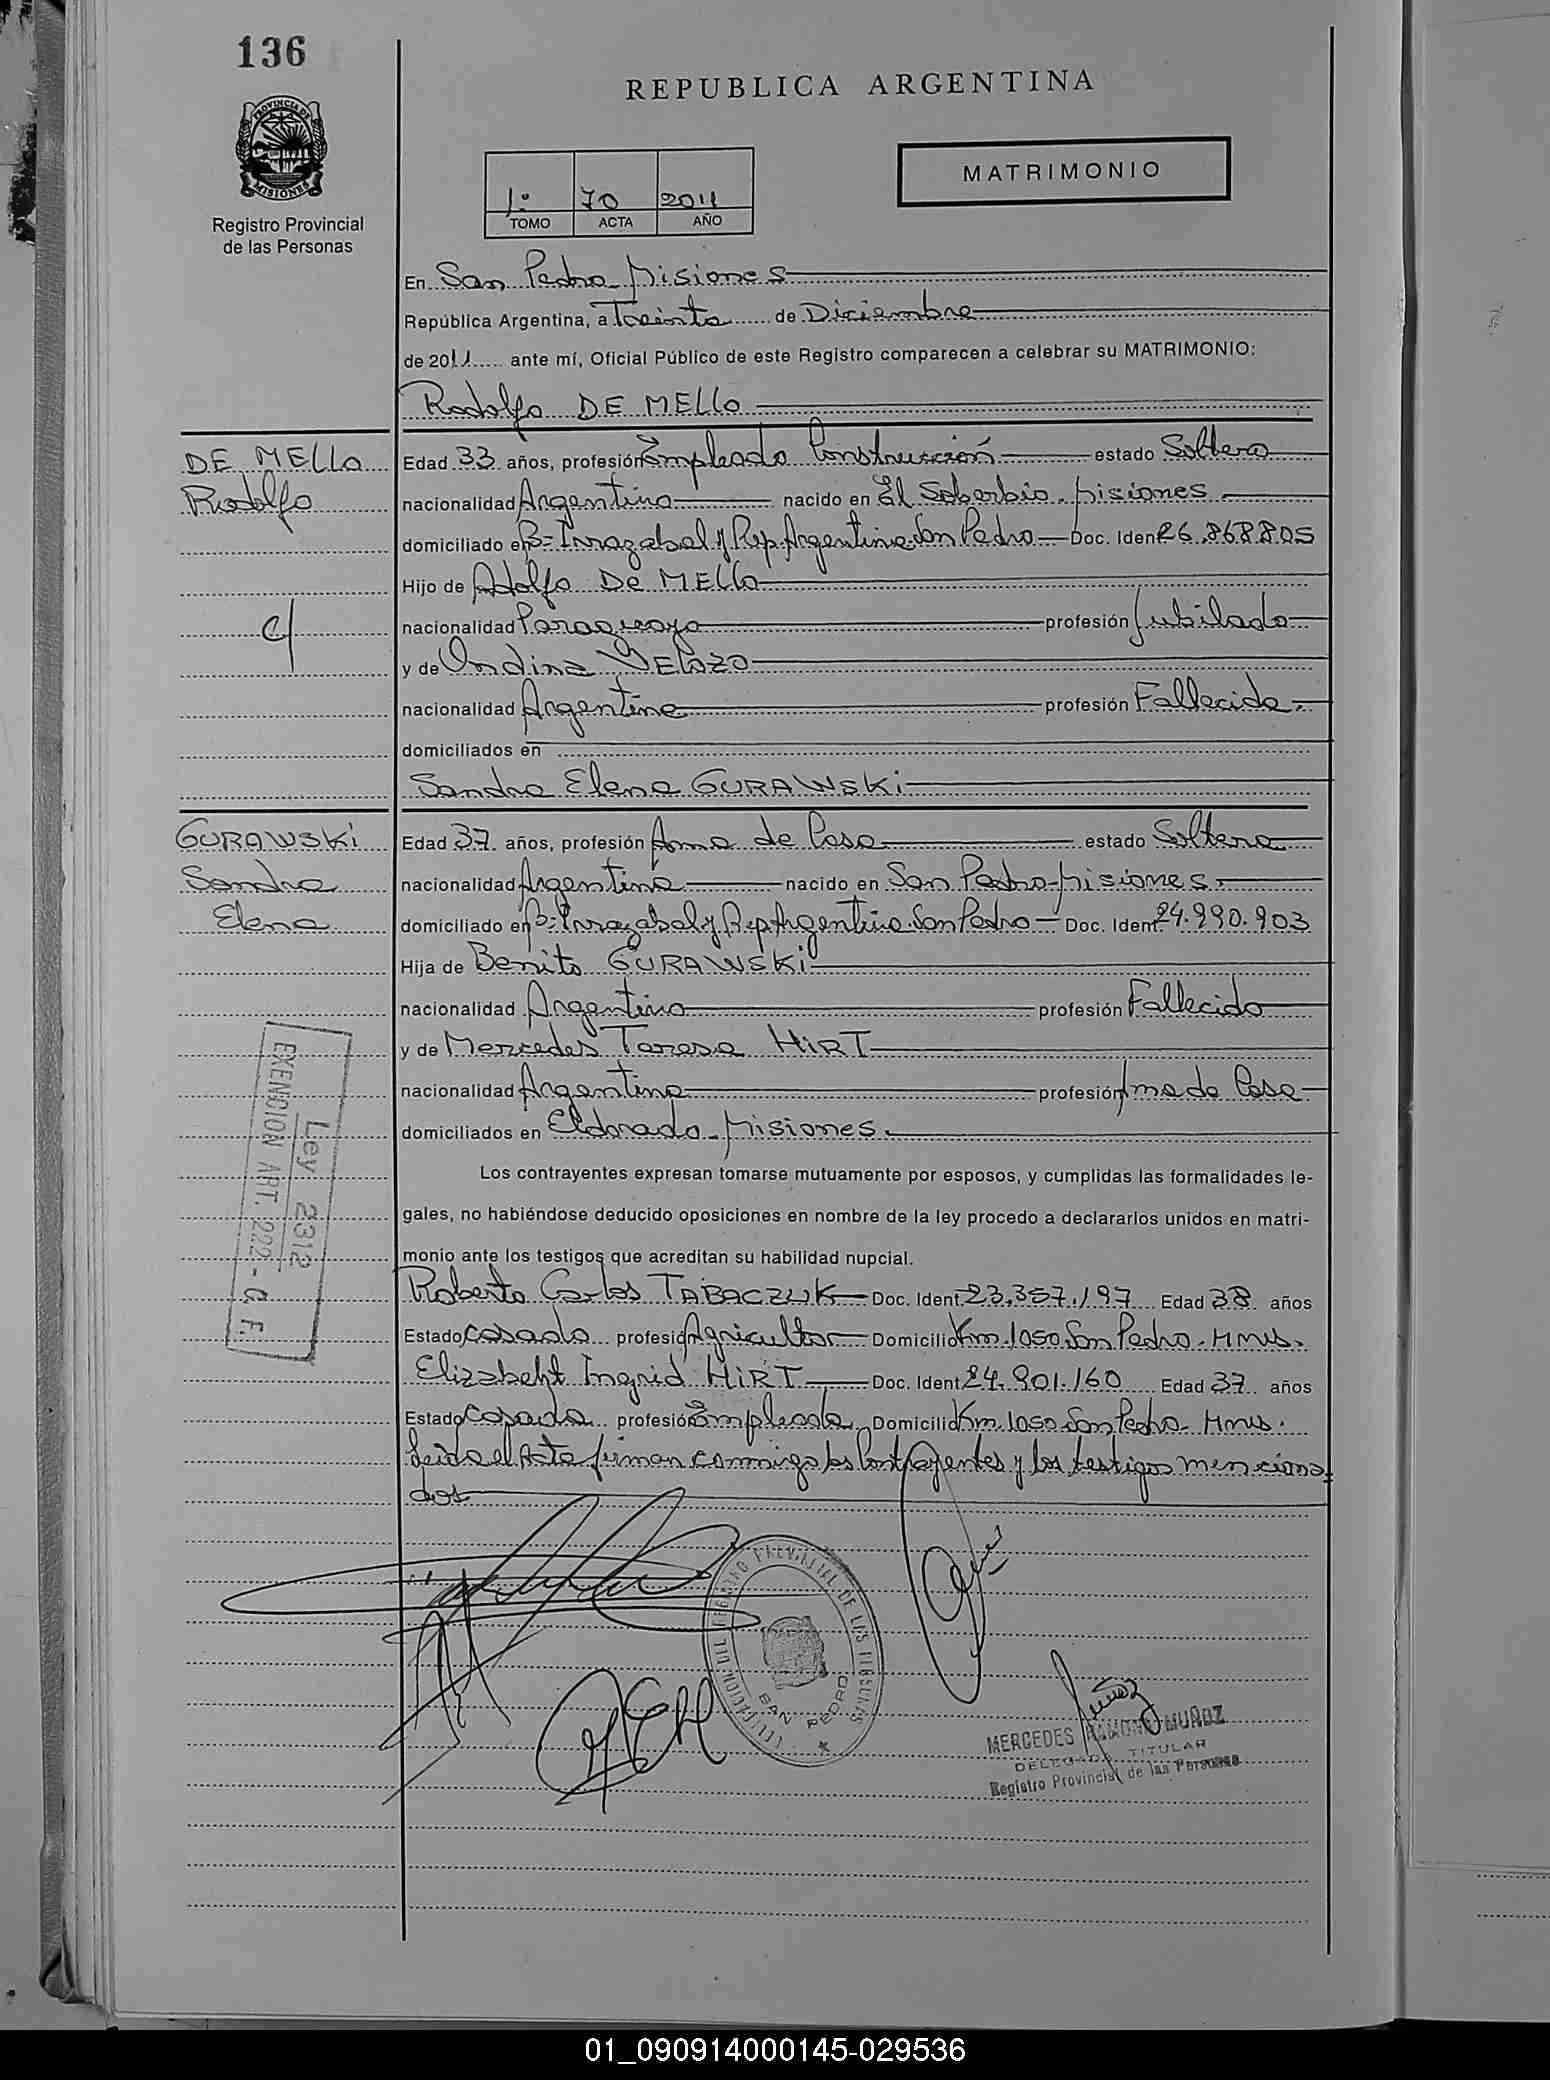 136
REPUBLICA ARGENTINA
PROVINCIA DE
MISIONES
Registro Provincial
de las Personas
1º 70 2011
TOMO ACTA AÑO
MATRIMONIO
En San Pedro Misiones
República Argentina, a Treinta de Diciembre
de 2011 ante mí, Oficial Público de este Registro comparecen a celebrar su MATRIMONIO:
Rodolfo DE MELLO
DE MELLO
Rodolfo
c/
Edad 33 años, profesión Empleado Construcción estado Soltero
nacionalidad Argentino nacido en El Soberbio Misiones
domiciliado en Bº Irrazabal y Rep Argentina San Pedro Doc. Ident 26.868.805
Hijo de Adolfo DE MELLO
nacionalidad Paraguayo profesión Jubilado
y de Ondina VELOZO
nacionalidad Argentina profesión Fallecida
domiciliados en
Sandra Elena GURAWSKi
GURAWSKi
Sandra
Elena
Edad 37 años, profesión Ama de Casa estado Soltera
nacionalidad Argentina nacido en San Pedro Misiones.
domiciliado en Bº Irrazabal y Rep Argentina San Pedro Doc. Ident. 24.990.903
Hija de Benito GURAWSKi
nacionalidad Argentino profesión Fallecido
y de Mercedes Teresa HiRT
nacionalidad Argentina profesión Ama de Casa
domiciliados en Eldorado Misiones.
Ley 2312
EXENCION ART. 222 - C. F.
Los contrayentes expresan tomarse mutuamente por esposos, y cumplidas las formalidades le-
gales, no habiéndose deducido oposiciones en nombre de la ley procedo a declararlos unidos en matri-
monio ante los testigos que acreditan su habilidad nupcial.
Roberto Carlos TABACZUK Doc. Ident. 23.357.197 Edad 38 años
Estado Casado profesión Agricultor Domicilio Km. 1050 San Pedro - Mnes.
Elizabeht Ingrid HiRT Doc. Ident 24.901.160 Edad 37 años
Estado Casada profesión Empleada Domicilio Km. 1050 San Pedro - Mnes.
Leida el Acta firman conmigo los Contrayentes y los testigos menciona
dos
DELEGACION DEL REGISTRO PROVINCIAL DE LAS PERSONAS
SAN PEDRO
MERCEDES RAMONA MUÑOZ
DELEGADA TITULAR
Registro Provincial de las Personas
01_090914000145-029536